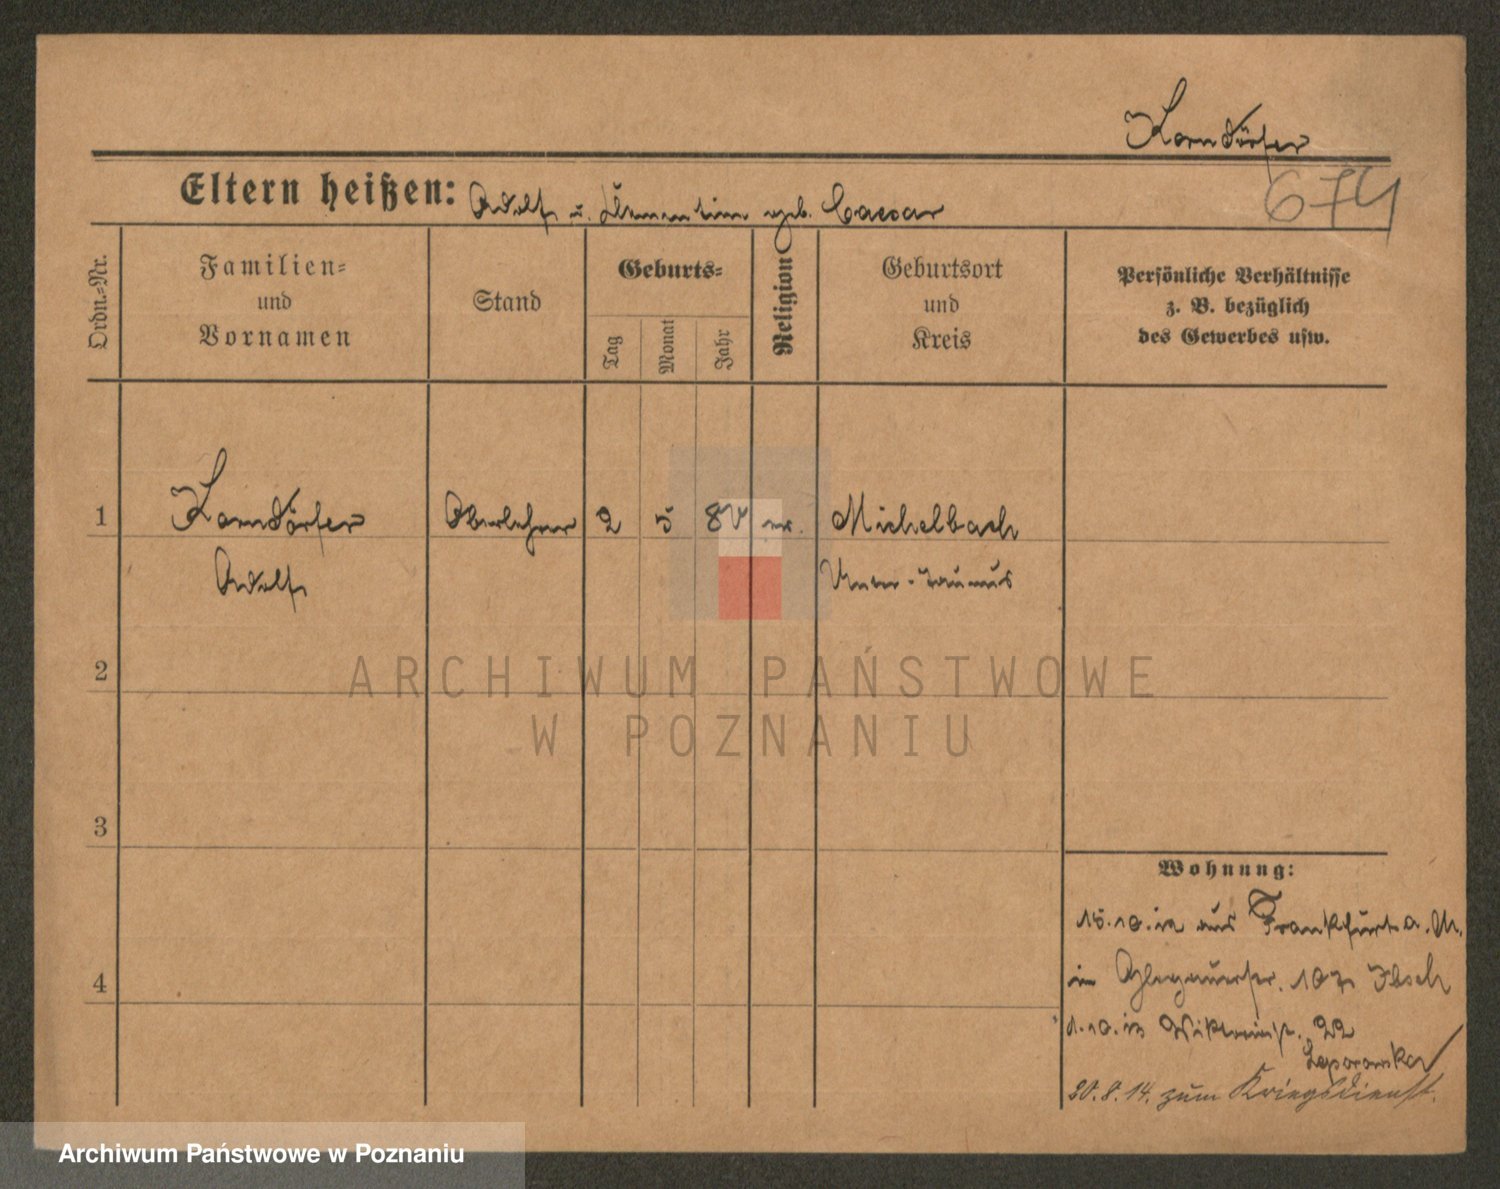 Korndörfer
674
Eltern heißen: Adolf u. Klementine geb. Caesar
Ordn.-Nr.
Familien-
und
Vornamen
Stand
Geburts-
Tag
Monat
Jahr
Religion
Geburtsort
und
Kreis
Persönliche Verhältnisse
z. B. bezüglich
des Gewerbes usw.
1
Korndörfer
Adolf
Oberlehrer
2
5
8
Michelbach
Unter-Taunus
2
3
4
ARCHIWUM PAŃSTWOWE
W POZNANIU
Wohnung:
15.10.12 aus Frankfurt a. M.
in Glogauerstr. 107
1.10.13 Viktoriastr. 22
Leporowska
20.8.14. zum Kriegsdienst.
Archiwum Państwowe w Poznaniu